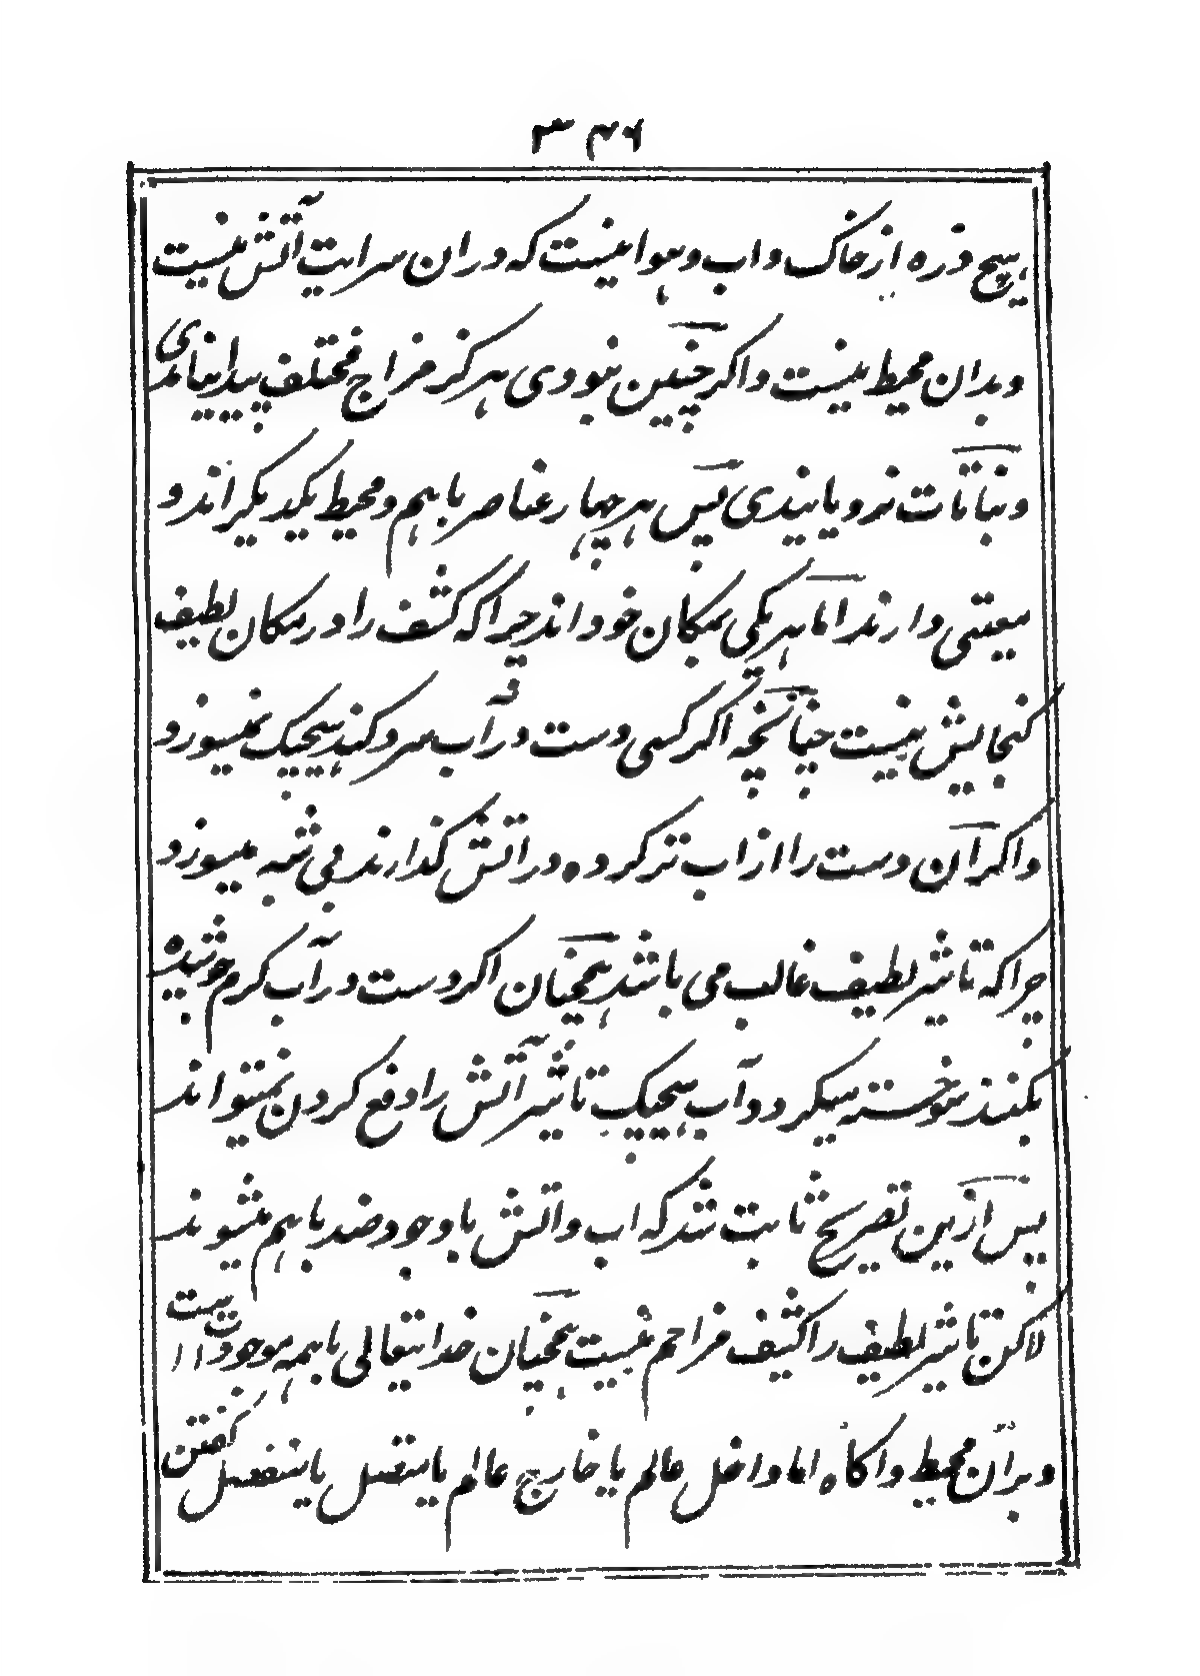 ۳۴۶
هیچ ذره از خاک و اب و هوا نیست که دران سرایت آتش نیست
و بدان محیط نیست و اکر چنین نبودی هرکز مزاج مختلف پیدا نیامدی
و نباتات نرویانیدی پس هر چهار عناصر باهم و محیط یکدیکر اند و
معیتی دارند اما هر یکی بمکان خود اند چرا که کثیف را در مکان لطیف
کنجایش نیست چنانچه اکر کسی دست در آب سرد کند هیچیک نمیسوزد
و اکر آن دست را از اب تر کرده در اتش کذارند بی شبه میسوزد
چرا که تاثیر لطیف غالب می باشد همچنان اکر دست در آب کرم جوشیده
بکنند سوخته میکردد و آب هیچیک تاثیر آتش را دفع کردن نمیتواند
پس ازین تصریح ثابت شد که اب و اتش باوجود ضد باهم میشوند
لاکن تاثیر لطیف را کثیف مزاحم نیست همچنان خدایتعالی باهمه موجودات است
و بران محیط و اکاه اما داخل عالم یا خارج عالم یا متصل یا منفصل کفتن